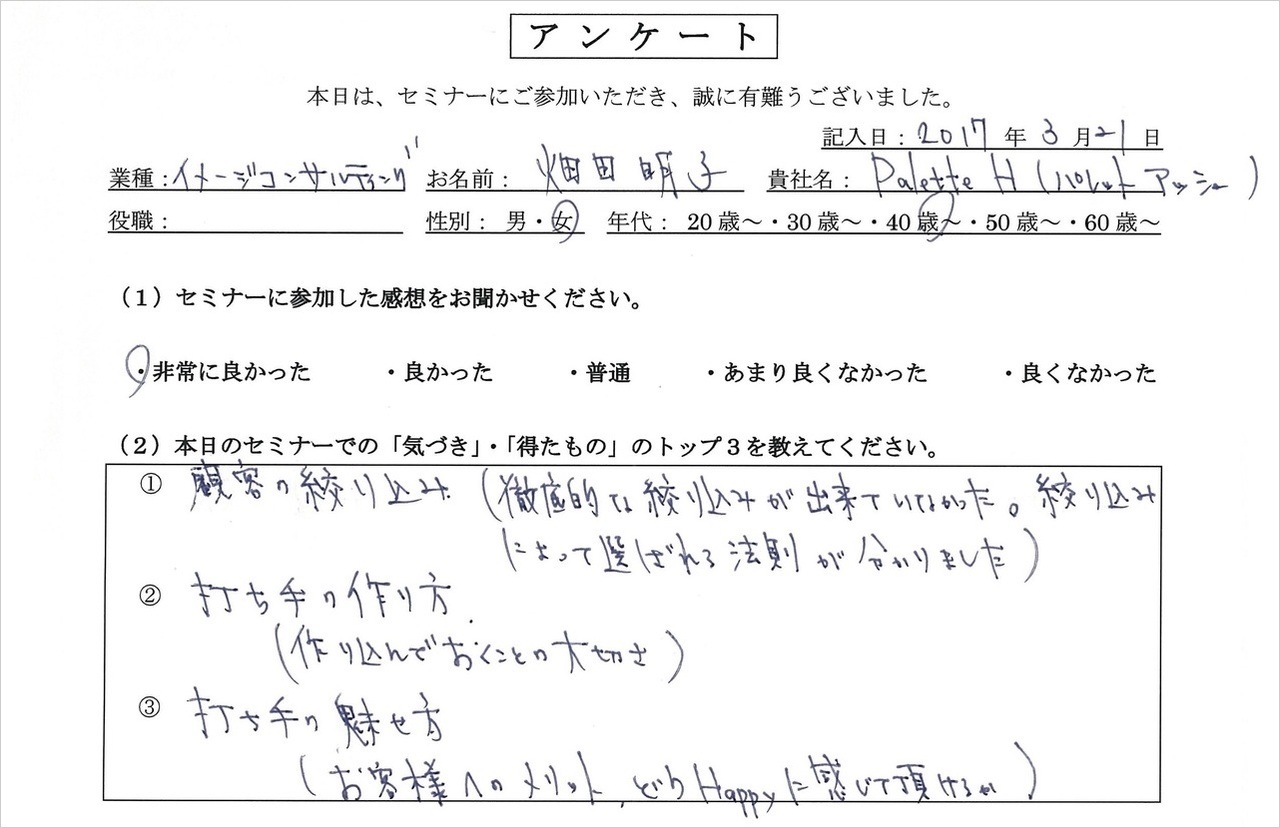 アンケート
本日は、セミナーにご参加いただき、誠に有難うございました。
記入日：2017年3月21日
業種：イメージコンサルティング お名前：畑田明子 貴社名：Palette H（パレットアッシュー）
役職： 性別：男・女 年代：20歳～・30歳～・40歳～・50歳～・60歳～
（1）セミナーに参加した感想をお聞かせください。
・非常に良かった ・良かった ・普通 ・あまり良くなかった ・良くなかった
（2）本日のセミナーでの「気づき」・「得たもの」のトップ3を教えてください。
① 顧客の絞り込み（徹底的な絞り込みが出来ていなかった。絞り込み
によって選ばれる法則が分かりました）
② 打ち手の作り方
（作り込んでおくことの大切さ）
③ 打ち手の魅せ方
（お客様へのメリット、どうHappyに感じて頂けるか）